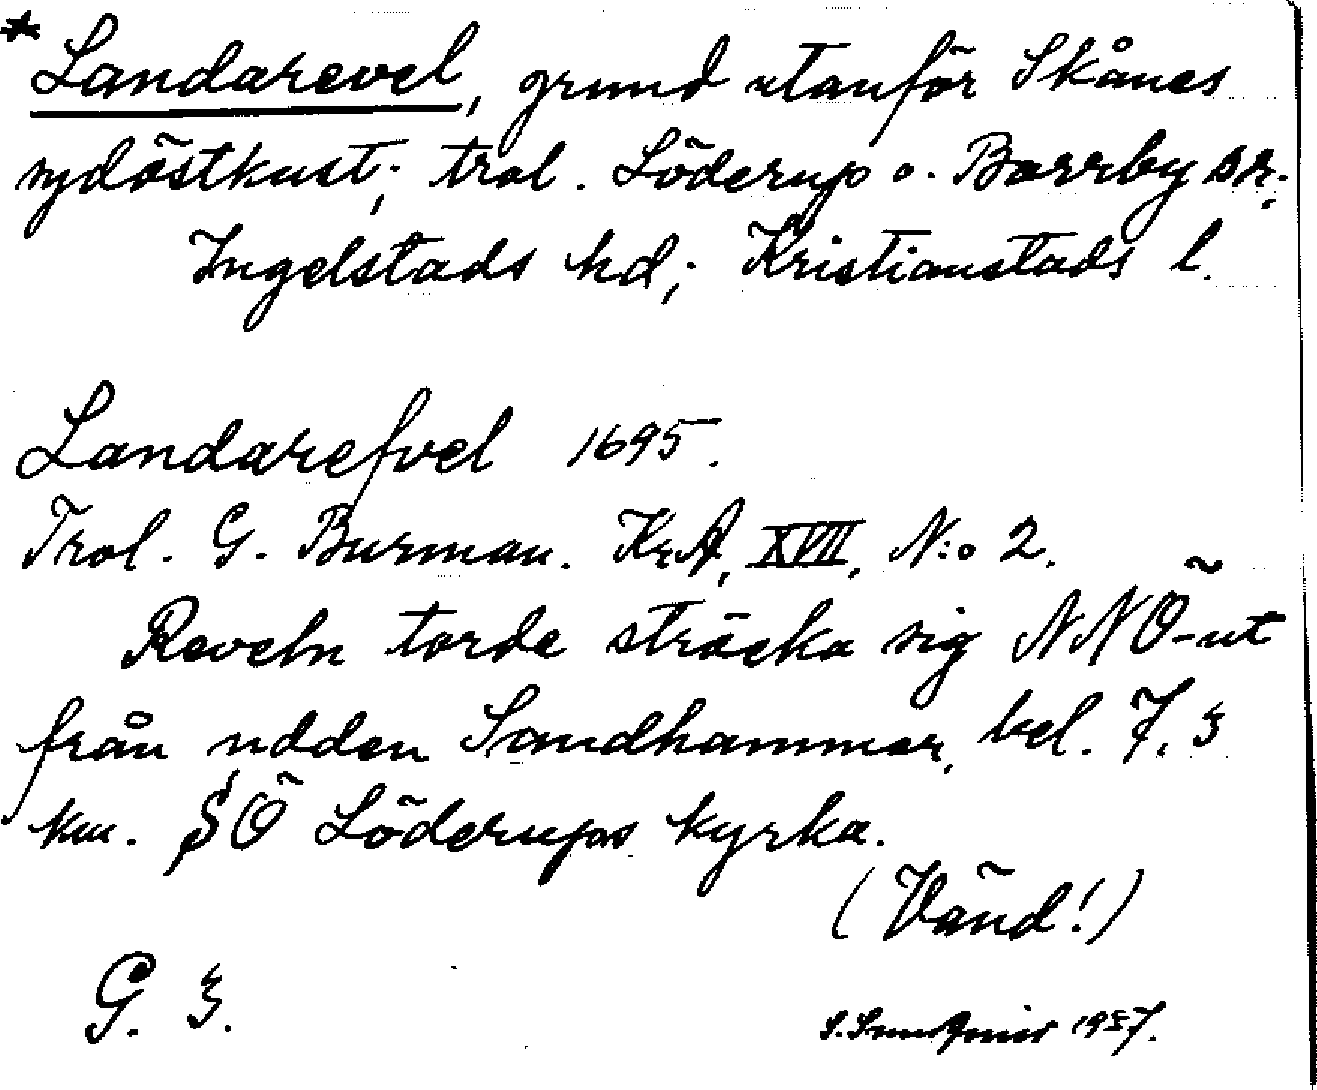 * Landarevel, grund utanför Skånes
sydöstkust; trol. Löderup o. Borrby snr.
Ingelstads hd; Kristianstads l.
Landarefvel 1695.
Trol. G. Burman. KrA, XVII, N:o 2.
Reveln torde sträcka sig NNÖ-ut
från udden Sandhammar, bel. 7.3
km. SÖ Löderups kyrka.
(Vänd!)
G. 3.
1957.